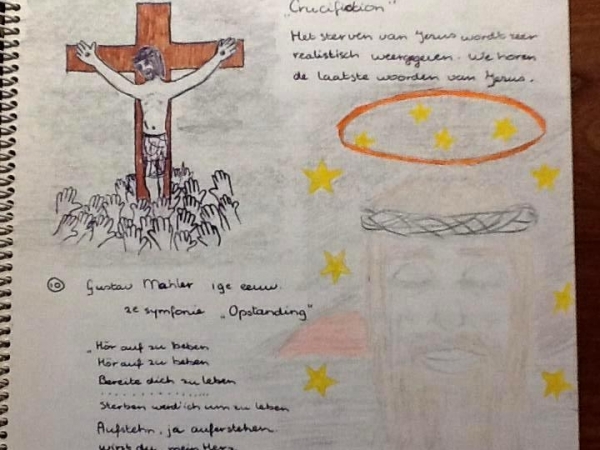 „Crucifiction"
Het sterven van Jesus wordt zeer
realistisch weergegeven. We horen
de laatste woorden van Jesus.
⑩ Gustav Mahler 19e eeuw.
2e symfonie „Opstanding"
„Hör auf zu beben
Hör auf zu beben
Bereite dich zu leben
..............
Sterben werd ich um zu leben
Aufstehn, ja auferstehen
wirst du mein Herz